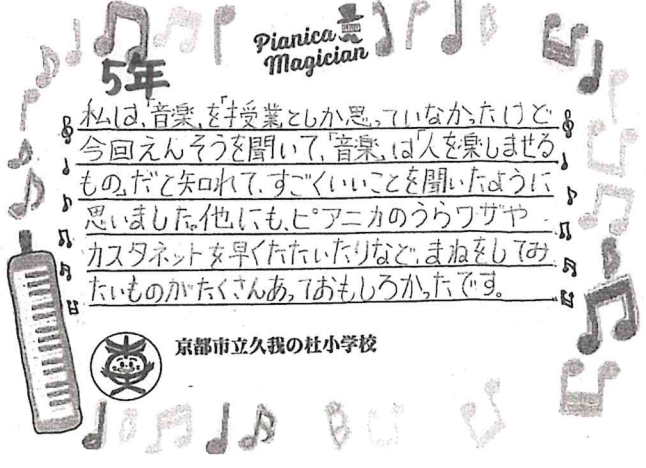 Pianica
Magician
5年
私は、「音楽」を「授業としか思っていなかったけど
今回えんそうを聞いて、「音楽」は「人を楽しませる
もの」だと知れて、すごくいいことを聞いたように
思いました。他にも、ピアニカのうらワザや
カスタネットを早くたたいたりなど、まねをしてみ
たいものがたくさんあっておもしろかったです。
京都市立久我の杜小学校